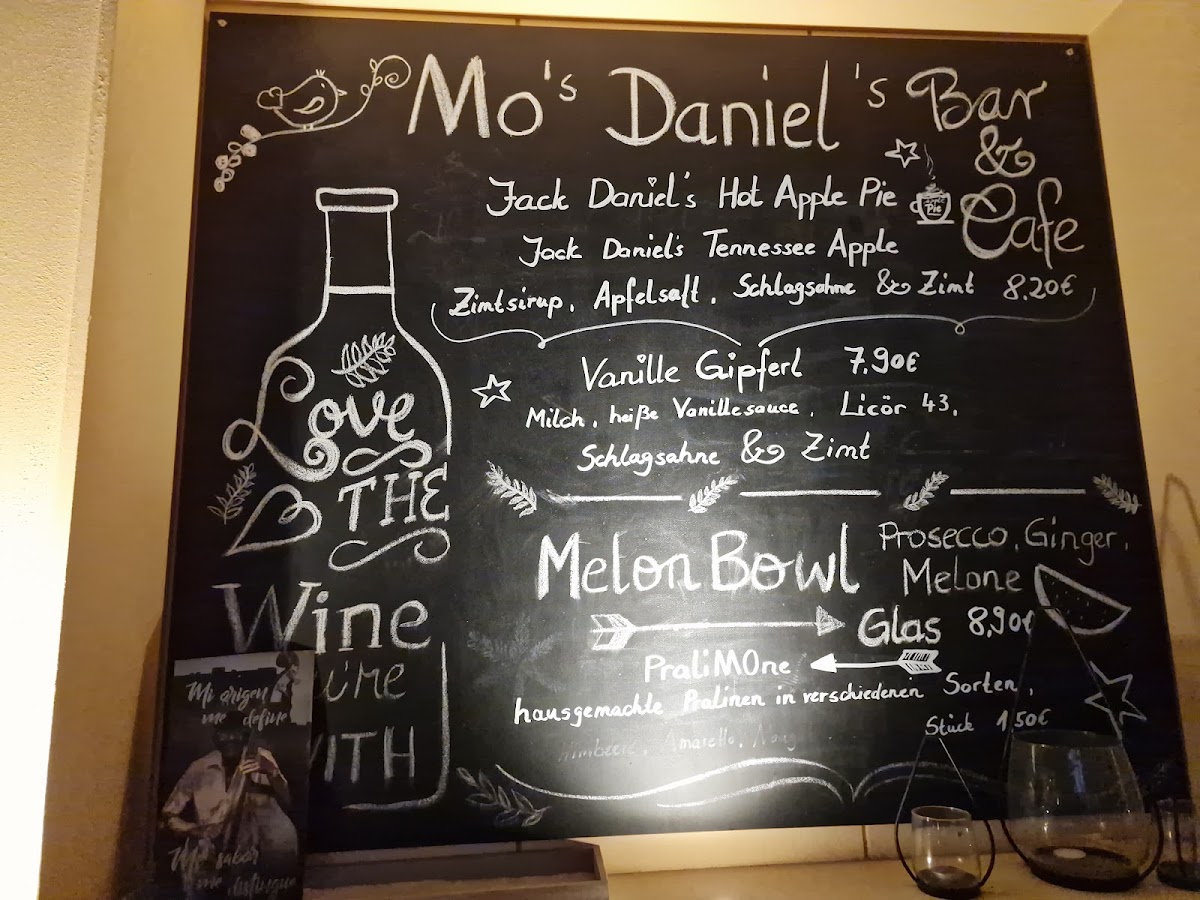 Mo's Daniel's Bar
&
Cafe
Jack Daniel's Hot Apple Pie
Apple
Pie
Jack Daniel's Tennessee Apple
Zimtsirup, Apfelsaft, Schlagsahne & Zimt 8,20€
Vanille Gipferl 7,90€
Milch, heiße Vanillesauce, Licör 43,
Schlagsahne & Zimt
Love
THE
Wine
WITH
Melon Bowl
Prosecco, Ginger,
Melone
Glas 8,90€
PraliMOne
hausgemachte Pralinen in verschiedenen Sorten,
Stück 1,50€
Himbeere, Amaretto,
Mi origen
me define
Mi sabor
me distingue